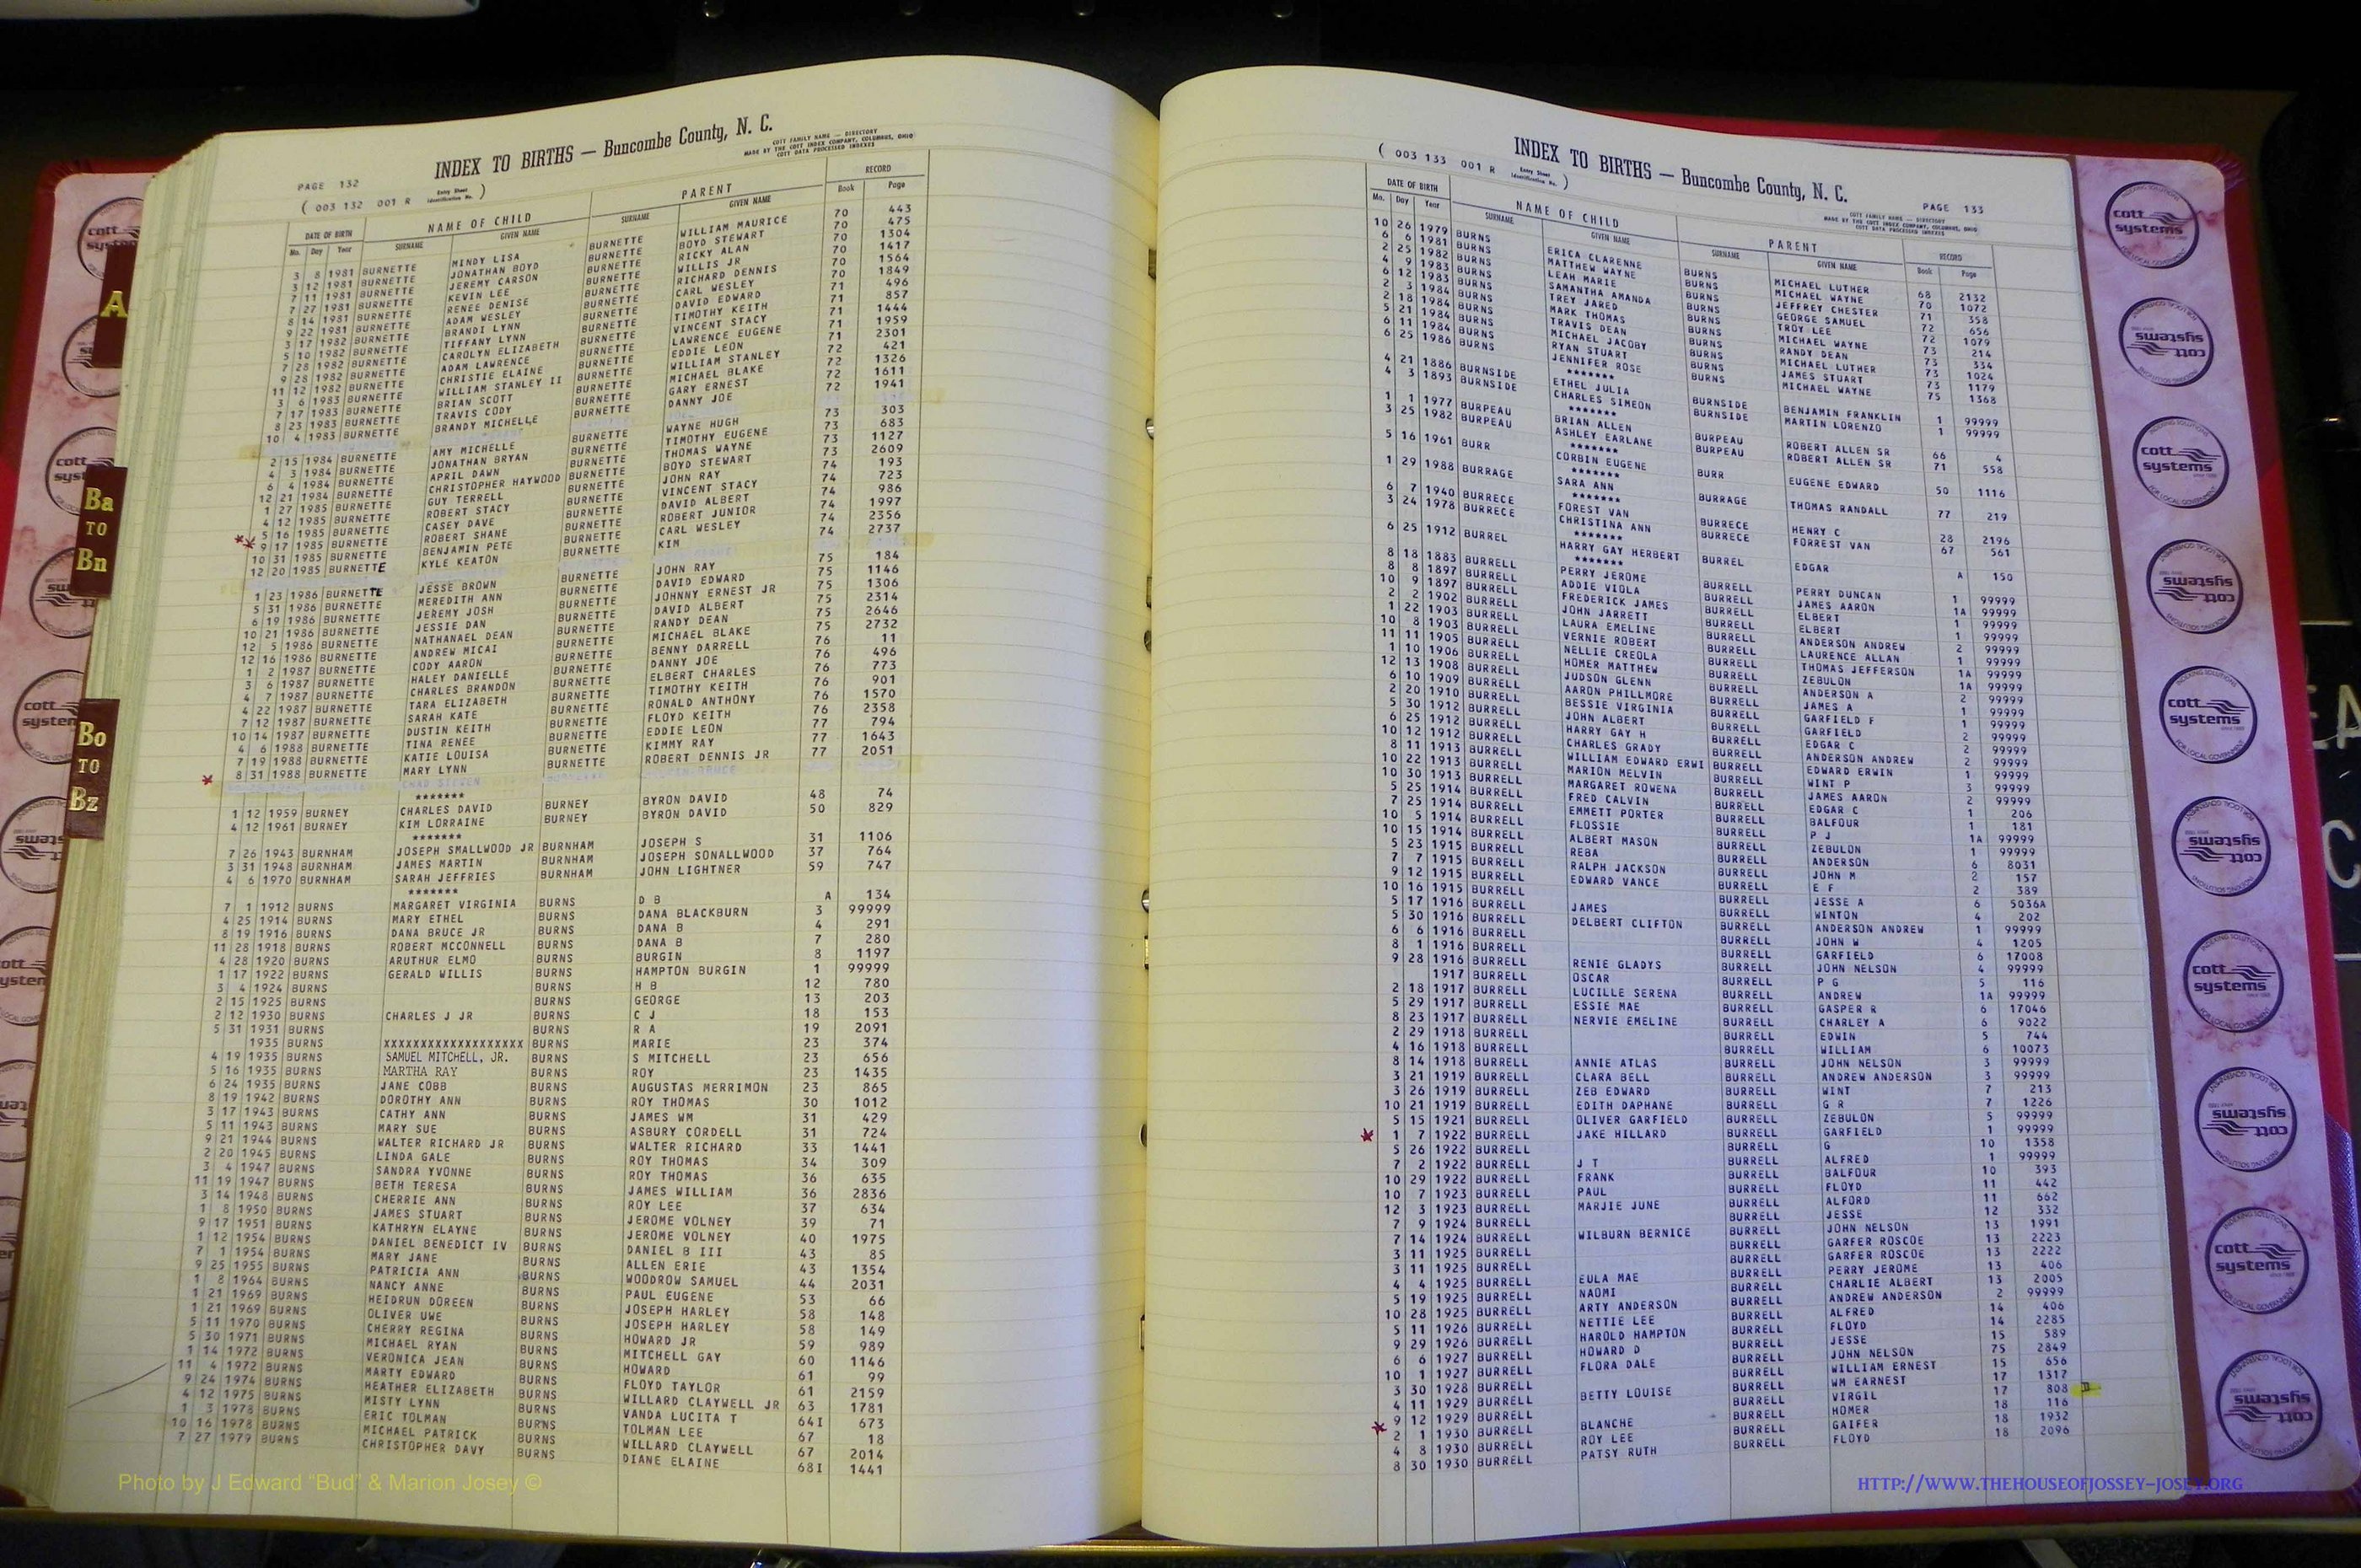 INDEX TO BIRTHS — Buncombe County, N. C.
COTT FAMILY NAME — DIRECTORY
MADE BY THE COTT INDEX COMPANY, COLUMBUS, OHIO
COTT DATA PROCESSED INDEXES
PAGE 132
( 003 132 001 R Entry Sheet Identification No. )
DATE OF BIRTH NAME OF CHILD PARENT RECORD
Mo. Day Year SURNAME GIVEN NAME SURNAME GIVEN NAME Book Page
3 8 1981 BURNETTE MINDY LISA BURNETTE WILLIAM MAURICE 70 443
3 12 1981 BURNETTE JONATHAN BOYD BURNETTE BOYD STEWART 70 475
7 11 1981 BURNETTE JEREMY CARSON BURNETTE RICKY ALAN 70 1304
7 27 1981 BURNETTE KEVIN LEE BURNETTE WILLIS JR 70 1417
8 14 1981 BURNETTE RENEE DENISE BURNETTE RICHARD DENNIS 70 1564
9 22 1981 BURNETTE ADAM WESLEY BURNETTE CARL WESLEY 70 1849
3 17 1982 BURNETTE BRANDI LYNN BURNETTE DAVID EDWARD 71 496
5 10 1982 BURNETTE TIFFANY LYNN BURNETTE TIMOTHY KEITH 71 857
7 28 1982 BURNETTE CAROLYN ELIZABETH BURNETTE VINCENT STACY 71 1444
9 28 1982 BURNETTE ADAM LAWRENCE BURNETTE LAWRENCE EUGENE 71 1959
11 12 1982 BURNETTE CHRISTIE ELAINE BURNETTE EDDIE LEON 71 2301
3 6 1983 BURNETTE WILLIAM STANLEY II BURNETTE WILLIAM STANLEY 72 421
7 17 1983 BURNETTE BRIAN SCOTT BURNETTE MICHAEL BLAKE 72 1326
8 23 1983 BURNETTE TRAVIS CODY BURNETTE GARY ERNEST 72 1611
10 4 1983 BURNETTE BRANDY MICHELLE BURNETTE DANNY JOE 72 1941
2 15 1984 BURNETTE AMY MICHELLE BURNETTE WAYNE HUGH 73 303
4 3 1984 BURNETTE JONATHAN BRYAN BURNETTE TIMOTHY EUGENE 73 683
6 4 1984 BURNETTE APRIL DAWN BURNETTE THOMAS WAYNE 73 1127
12 21 1984 BURNETTE CHRISTOPHER HAYWOOD BURNETTE BOYD STEWART 73 2609
1 27 1985 BURNETTE GUY TERRELL BURNETTE JOHN RAY 74 193
4 12 1985 BURNETTE ROBERT STACY BURNETTE VINCENT STACY 74 723
5 16 1985 BURNETTE CASEY DAVE BURNETTE DAVID ALBERT 74 986
9 17 1985 BURNETTE ROBERT SHANE BURNETTE ROBERT JUNIOR 74 1997
10 31 1985 BURNETTE BENJAMIN PETE BURNETTE CARL WESLEY 74 2356
12 20 1985 BURNETTE KYLE KEATON BURNETTE KIM 74 2737
1 23 1986 BURNETTE JESSE BROWN BURNETTE JOHN RAY 75 184
5 31 1986 BURNETTE MEREDITH ANN BURNETTE DAVID EDWARD 75 1146
6 19 1986 BURNETTE JEREMY JOSH BURNETTE JOHNNY ERNEST JR 75 1306
10 21 1986 BURNETTE JESSIE DAN BURNETTE DAVID ALBERT 75 2314
12 5 1986 BURNETTE NATHANAEL DEAN BURNETTE RANDY DEAN 75 2646
12 16 1986 BURNETTE ANDREW MICAI BURNETTE MICHAEL BLAKE 75 2732
1 2 1987 BURNETTE CODY AARON BURNETTE BENNY DARRELL 76 11
3 6 1987 BURNETTE HALEY DANIELLE BURNETTE DANNY JOE 76 496
4 7 1987 BURNETTE CHARLES BRANDON BURNETTE ELBERT CHARLES 76 773
4 22 1987 BURNETTE TARA ELIZABETH BURNETTE TIMOTHY KEITH 76 901
7 12 1987 BURNETTE SARAH KATE BURNETTE RONALD ANTHONY 76 1570
10 14 1987 BURNETTE DUSTIN KEITH BURNETTE FLOYD KEITH 76 2358
4 6 1988 BURNETTE TINA RENEE BURNETTE EDDIE LEON 77 794
7 19 1988 BURNETTE KATIE LOUISA BURNETTE KIMMY RAY 77 1643
8 31 1988 BURNETTE MARY LYNN BURNETTE ROBERT DENNIS JR 77 2051
*******
1 12 1959 BURNEY CHARLES DAVID BURNEY BYRON DAVID 48 74
4 12 1961 BURNEY KIM LORRAINE BURNEY BYRON DAVID 50 829
*******
7 26 1943 BURNHAM JOSEPH SMALLWOOD JR BURNHAM JOSEPH S 31 1106
3 31 1948 BURNHAM JAMES MARTIN BURNHAM JOSEPH SONALLWOOD 37 764
4 6 1970 BURNHAM SARAH JEFFRIES BURNHAM JOHN LIGHTNER 59 747
*******
7 1 1912 BURNS MARGARET VIRGINIA BURNS D B A 134
4 25 1914 BURNS MARY ETHEL BURNS DANA BLACKBURN 3 99999
8 19 1916 BURNS DANA BRUCE JR BURNS DANA B 4 291
11 28 1918 BURNS ROBERT MCCONNELL BURNS DANA B 7 280
4 28 1920 BURNS ARUTHUR ELMO BURNS BURGIN 8 1197
1 17 1922 BURNS GERALD WILLIS BURNS HAMPTON BURGIN 1 99999
3 4 1924 BURNS BURNS H B 12 780
2 15 1925 BURNS BURNS GEORGE 13 203
2 12 1930 BURNS CHARLES J JR BURNS C J 18 153
5 31 1931 BURNS BURNS R A 19 2091
1935 BURNS XXXXXXXXXXXXXXXXXXX BURNS MARIE 23 374
4 19 1935 BURNS SAMUEL MITCHELL, JR. BURNS S MITCHELL 23 656
5 16 1935 BURNS MARTHA RAY BURNS ROY 23 1435
6 24 1935 BURNS JANE COBB BURNS AUGUSTAS MERRIMON 23 865
8 19 1942 BURNS DOROTHY ANN BURNS ROY THOMAS 30 1012
3 17 1943 BURNS CATHY ANN BURNS JAMES WM 31 429
5 11 1943 BURNS MARY SUE BURNS ASBURY CORDELL 31 724
9 21 1944 BURNS WALTER RICHARD JR BURNS WALTER RICHARD 33 1441
2 20 1945 BURNS LINDA GALE BURNS ROY THOMAS 34 309
3 4 1947 BURNS SANDRA YVONNE BURNS ROY THOMAS 36 635
11 19 1947 BURNS BETH TERESA BURNS JAMES WILLIAM 36 2836
3 14 1948 BURNS CHERRIE ANN BURNS ROY LEE 37 634
1 8 1950 BURNS JAMES STUART BURNS JEROME VOLNEY 39 71
9 17 1951 BURNS KATHRYN ELAYNE BURNS JEROME VOLNEY 40 1975
1 12 1954 BURNS DANIEL BENEDICT IV BURNS DANIEL B III 43 85
7 1 1954 BURNS MARY JANE BURNS ALLEN ERIE 43 1354
9 25 1955 BURNS PATRICIA ANN BURNS WOODROW SAMUEL 44 2031
1 8 1964 BURNS NANCY ANNE BURNS PAUL EUGENE 53 66
1 21 1969 BURNS HEIDRUN DOREEN BURNS JOSEPH HARLEY 58 148
1 21 1969 BURNS OLIVER UWE BURNS JOSEPH HARLEY 58 149
5 11 1970 BURNS CHERRY REGINA BURNS HOWARD JR 59 989
5 30 1971 BURNS MICHAEL RYAN BURNS MITCHELL GAY 60 1146
1 14 1972 BURNS VERONICA JEAN BURNS HOWARD 61 99
11 4 1972 BURNS MARTY EDWARD BURNS FLOYD TAYLOR 61 2159
9 24 1974 BURNS HEATHER ELIZABETH BURNS WILLARD CLAYWELL JR 63 1781
4 12 1975 BURNS MISTY LYNN BURNS VANDA LUCITA T 64I 673
1 3 1978 BURNS ERIC TOLMAN BURNS TOLMAN LEE 67 18
10 16 1978 BURNS MICHAEL PATRICK BURNS WILLARD CLAYWELL 67 2014
7 27 1979 BURNS CHRISTOPHER DAVY BURNS DIANE ELAINE 68I 1441
A
Ba TO Bn
Bo TO Bz
INDEX TO BIRTHS — Buncombe County, N. C.
( 003 133 001 R Entry Sheet Identification No. )
PAGE 133
COTT FAMILY NAME — DIRECTORY
MADE BY THE COTT INDEX COMPANY, COLUMBUS, OHIO
COTT DATA PROCESSED INDEXES
DATE OF BIRTH NAME OF CHILD PARENT RECORD
Mo. Day Year SURNAME GIVEN NAME SURNAME GIVEN NAME Book Page
10 26 1979 BURNS ERICA CLARENNE BURNS MICHAEL LUTHER 68 2132
6 6 1981 BURNS MATTHEW WAYNE BURNS MICHAEL WAYNE 70 1072
2 25 1982 BURNS LEAH MARIE BURNS JEFFREY CHESTER 71 358
4 9 1983 BURNS SAMANTHA AMANDA BURNS GEORGE SAMUEL 72 656
6 12 1983 BURNS TREY JARED BURNS TROY LEE 72 1079
2 3 1984 BURNS MARK THOMAS BURNS MICHAEL WAYNE 73 214
2 18 1984 BURNS TRAVIS DEAN BURNS RANDY DEAN 73 334
5 21 1984 BURNS MICHAEL JACOBY BURNS MICHAEL LUTHER 73 1024
6 11 1984 BURNS RYAN STUART BURNS JAMES STUART 73 1179
6 25 1986 BURNS JENNIFER ROSE BURNS MICHAEL WAYNE 75 1368
*******
4 21 1886 BURNSIDE ETHEL JULIA BURNSIDE BENJAMIN FRANKLIN 1 99999
4 3 1893 BURNSIDE CHARLES SIMEON BURNSIDE MARTIN LORENZO 1 99999
*******
1 1 1977 BURPEAU BRIAN ALLEN BURPEAU ROBERT ALLEN SR 66 4
3 25 1982 BURPEAU ASHLEY EARLANE BURPEAU ROBERT ALLEN SR 71 558
*******
5 16 1961 BURR CORBIN EUGENE BURR EUGENE EDWARD 50 1116
*******
1 29 1988 BURRAGE SARA ANN BURRAGE THOMAS RANDALL 77 219
*******
6 7 1940 BURRECE FOREST VAN BURRECE HENRY C 28 2196
3 24 1978 BURRECE CHRISTINA ANN BURRECE FORREST VAN 67 561
*******
6 25 1912 BURREL HARRY GAY HERBERT BURREL EDGAR A 150
*******
8 18 1883 BURRELL PERRY JEROME BURRELL PERRY DUNCAN 1 99999
8 8 1897 BURRELL ADDIE VIOLA BURRELL JAMES AARON 1A 99999
10 9 1897 BURRELL FREDERICK JAMES BURRELL ELBERT 1 99999
2 2 1902 BURRELL JOHN JARRETT BURRELL ELBERT 1 99999
1 22 1903 BURRELL LAURA EMELINE BURRELL ANDERSON ANDREW 2 99999
10 8 1903 BURRELL VERNIE ROBERT BURRELL LAURENCE ALLAN 1 99999
11 11 1905 BURRELL NELLIE CREOLA BURRELL THOMAS JEFFERSON 1A 99999
1 10 1906 BURRELL HOMER MATTHEW BURRELL ZEBULON 1A 99999
12 13 1908 BURRELL JUDSON GLENN BURRELL ANDERSON A 2 99999
6 10 1909 BURRELL AARON PHILLMORE BURRELL JAMES A 1 99999
2 20 1910 BURRELL BESSIE VIRGINIA BURRELL GARFIELD F 1 99999
5 30 1912 BURRELL JOHN ALBERT BURRELL GARFIELD 2 99999
6 25 1912 BURRELL HARRY GAY H BURRELL EDGAR C 2 99999
10 12 1912 BURRELL CHARLES GRADY BURRELL ANDERSON ANDREW 2 99999
8 11 1913 BURRELL WILLIAM EDWARD ERWI BURRELL EDWARD ERWIN 1 99999
10 22 1913 BURRELL MARION MELVIN BURRELL WINT P 3 99999
10 30 1913 BURRELL MARGARET ROWENA BURRELL JAMES AARON 2 99999
5 25 1914 BURRELL FRED CALVIN BURRELL EDGAR C 1 206
7 25 1914 BURRELL EMMETT PORTER BURRELL BALFOUR 1 181
10 5 1914 BURRELL FLOSSIE BURRELL P J 1A 99999
10 15 1914 BURRELL ALBERT MASON BURRELL ZEBULON 1 99999
5 23 1915 BURRELL REBA BURRELL ANDERSON 6 8031
7 7 1915 BURRELL RALPH JACKSON BURRELL JOHN M 2 157
9 12 1915 BURRELL EDWARD VANCE BURRELL E F 2 389
10 16 1915 BURRELL BURRELL JESSE A 6 5036A
5 17 1916 BURRELL JAMES BURRELL WINTON 4 202
5 30 1916 BURRELL DELBERT CLIFTON BURRELL ANDERSON ANDREW 1 99999
6 6 1916 BURRELL BURRELL JOHN W 4 1205
8 1 1916 BURRELL BURRELL GARFIELD 6 17008
9 28 1916 BURRELL RENIE GLADYS BURRELL JOHN NELSON 4 99999
1917 BURRELL OSCAR BURRELL P G 5 116
2 18 1917 BURRELL LUCILLE SERENA BURRELL ANDREW 1A 99999
5 29 1917 BURRELL ESSIE MAE BURRELL GASPER R 6 17046
8 23 1917 BURRELL NERVIE EMELINE BURRELL CHARLEY A 6 9022
2 29 1918 BURRELL BURRELL EDWIN 5 744
4 16 1918 BURRELL BURRELL WILLIAM 6 10073
8 14 1918 BURRELL ANNIE ATLAS BURRELL JOHN NELSON 3 99999
3 21 1919 BURRELL CLARA BELL BURRELL ANDREW ANDERSON 3 99999
3 26 1919 BURRELL ZEB EDWARD BURRELL WINT 7 213
10 21 1919 BURRELL EDITH DAPHANE BURRELL G R 7 1226
5 15 1921 BURRELL OLIVER GARFIELD BURRELL ZEBULON 5 99999
1 7 1922 BURRELL JAKE HILLARD BURRELL GARFIELD 1 99999
5 26 1922 BURRELL BURRELL G 10 1358
7 2 1922 BURRELL J T BURRELL ALFRED 1 99999
10 29 1922 BURRELL FRANK BURRELL BALFOUR 10 393
10 7 1923 BURRELL PAUL BURRELL FLOYD 11 442
12 3 1923 BURRELL MARJIE JUNE BURRELL ALFORD 11 662
7 9 1924 BURRELL BURRELL JESSE 12 332
7 14 1924 BURRELL WILBURN BERNICE BURRELL JOHN NELSON 13 1991
3 11 1925 BURRELL BURRELL GARFER ROSCOE 13 2223
3 11 1925 BURRELL BURRELL GARFER ROSCOE 13 2222
4 4 1925 BURRELL EULA MAE BURRELL PERRY JEROME 13 406
5 19 1925 BURRELL NAOMI BURRELL CHARLIE ALBERT 13 2005
10 28 1925 BURRELL ARTY ANDERSON BURRELL ANDREW ANDERSON 2 99999
5 11 1926 BURRELL NETTIE LEE BURRELL ALFRED 14 406
9 29 1926 BURRELL HAROLD HAMPTON BURRELL FLOYD 14 2285
6 6 1927 BURRELL HOWARD D BURRELL JESSE 15 589
10 1 1927 BURRELL FLORA DALE BURRELL JOHN NELSON 75 2849
3 30 1928 BURRELL BURRELL WILLIAM ERNEST 15 656
4 11 1929 BURRELL BETTY LOUISE BURRELL WM EARNEST 17 1317
9 12 1929 BURRELL BURRELL VIRGIL 17 808
2 1 1930 BURRELL BLANCHE BURRELL HOMER 18 116
4 8 1930 BURRELL ROY LEE BURRELL GAIFER 18 1932
8 30 1930 BURRELL PATSY RUTH BURRELL FLOYD 18 2096
cott systems
INDEXING SOLUTIONS
FOR LOCAL GOVERNMENT
Photo by J Edward "Bud" & Marion Josey ©
HTTP://WWW.THEHOUSEOFJOSSEY-JOSEY.ORG